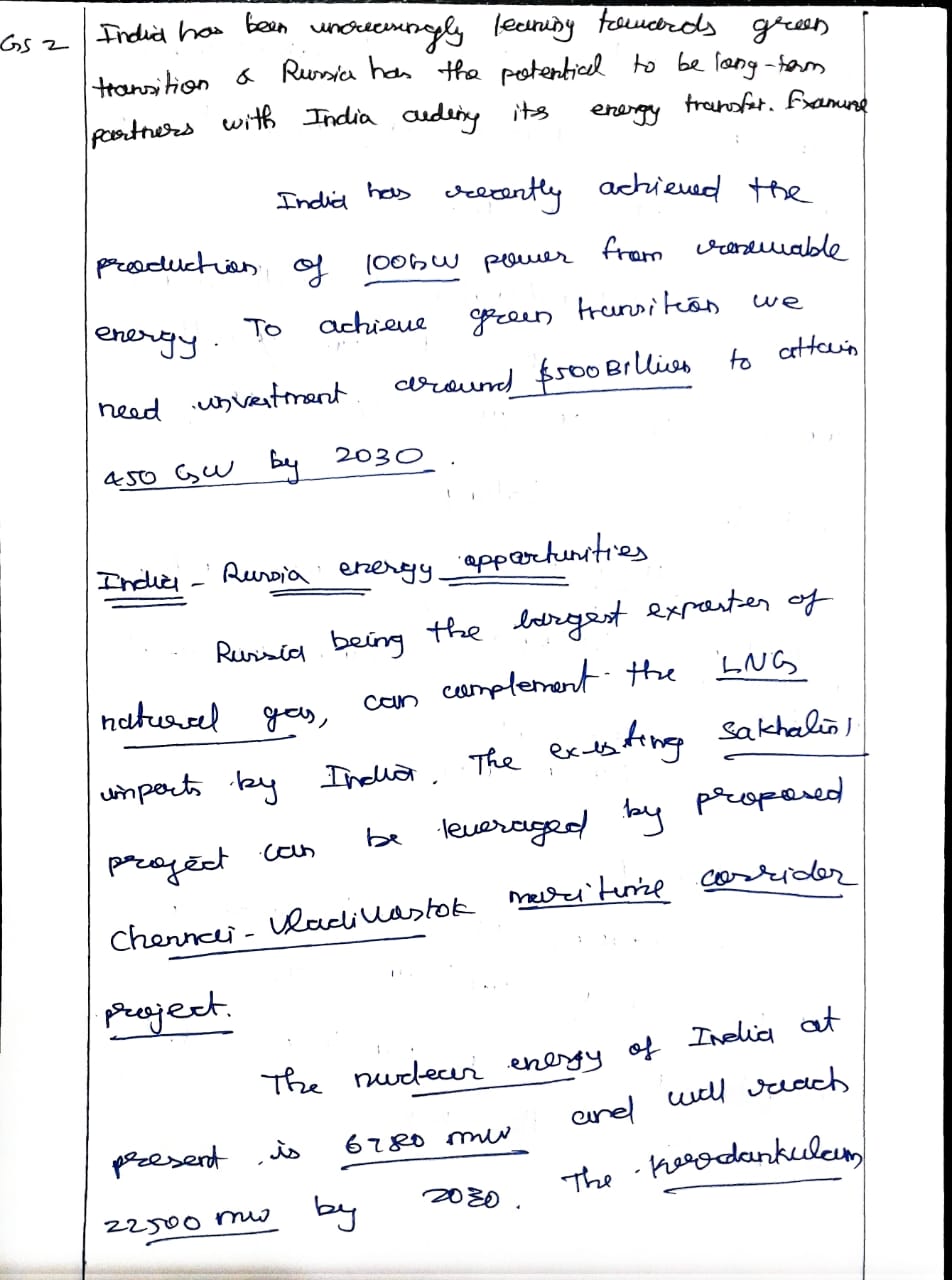 GS 2
India has been increasingly leaning towards green
transition & Russia has the potential to be long-term
partners with India during its energy transfer. Examine
India has recently achieved the
production of 100GW power from renewable
energy. To achieve green transition we
need investment around $500 Billion to attain
450 GW by 2030.
India - Russia energy opportunities
Russia being the largest exporter of
natural gas, can complement the LNG
imports by India. The existing Sakhalin 1
project can be leveraged by proposed
Chennai - Vladivastok maritime corridor
project.
The nuclear energy of India at
present is 6780 mw and will reach
22500 mw by 2030. The Koodankulam